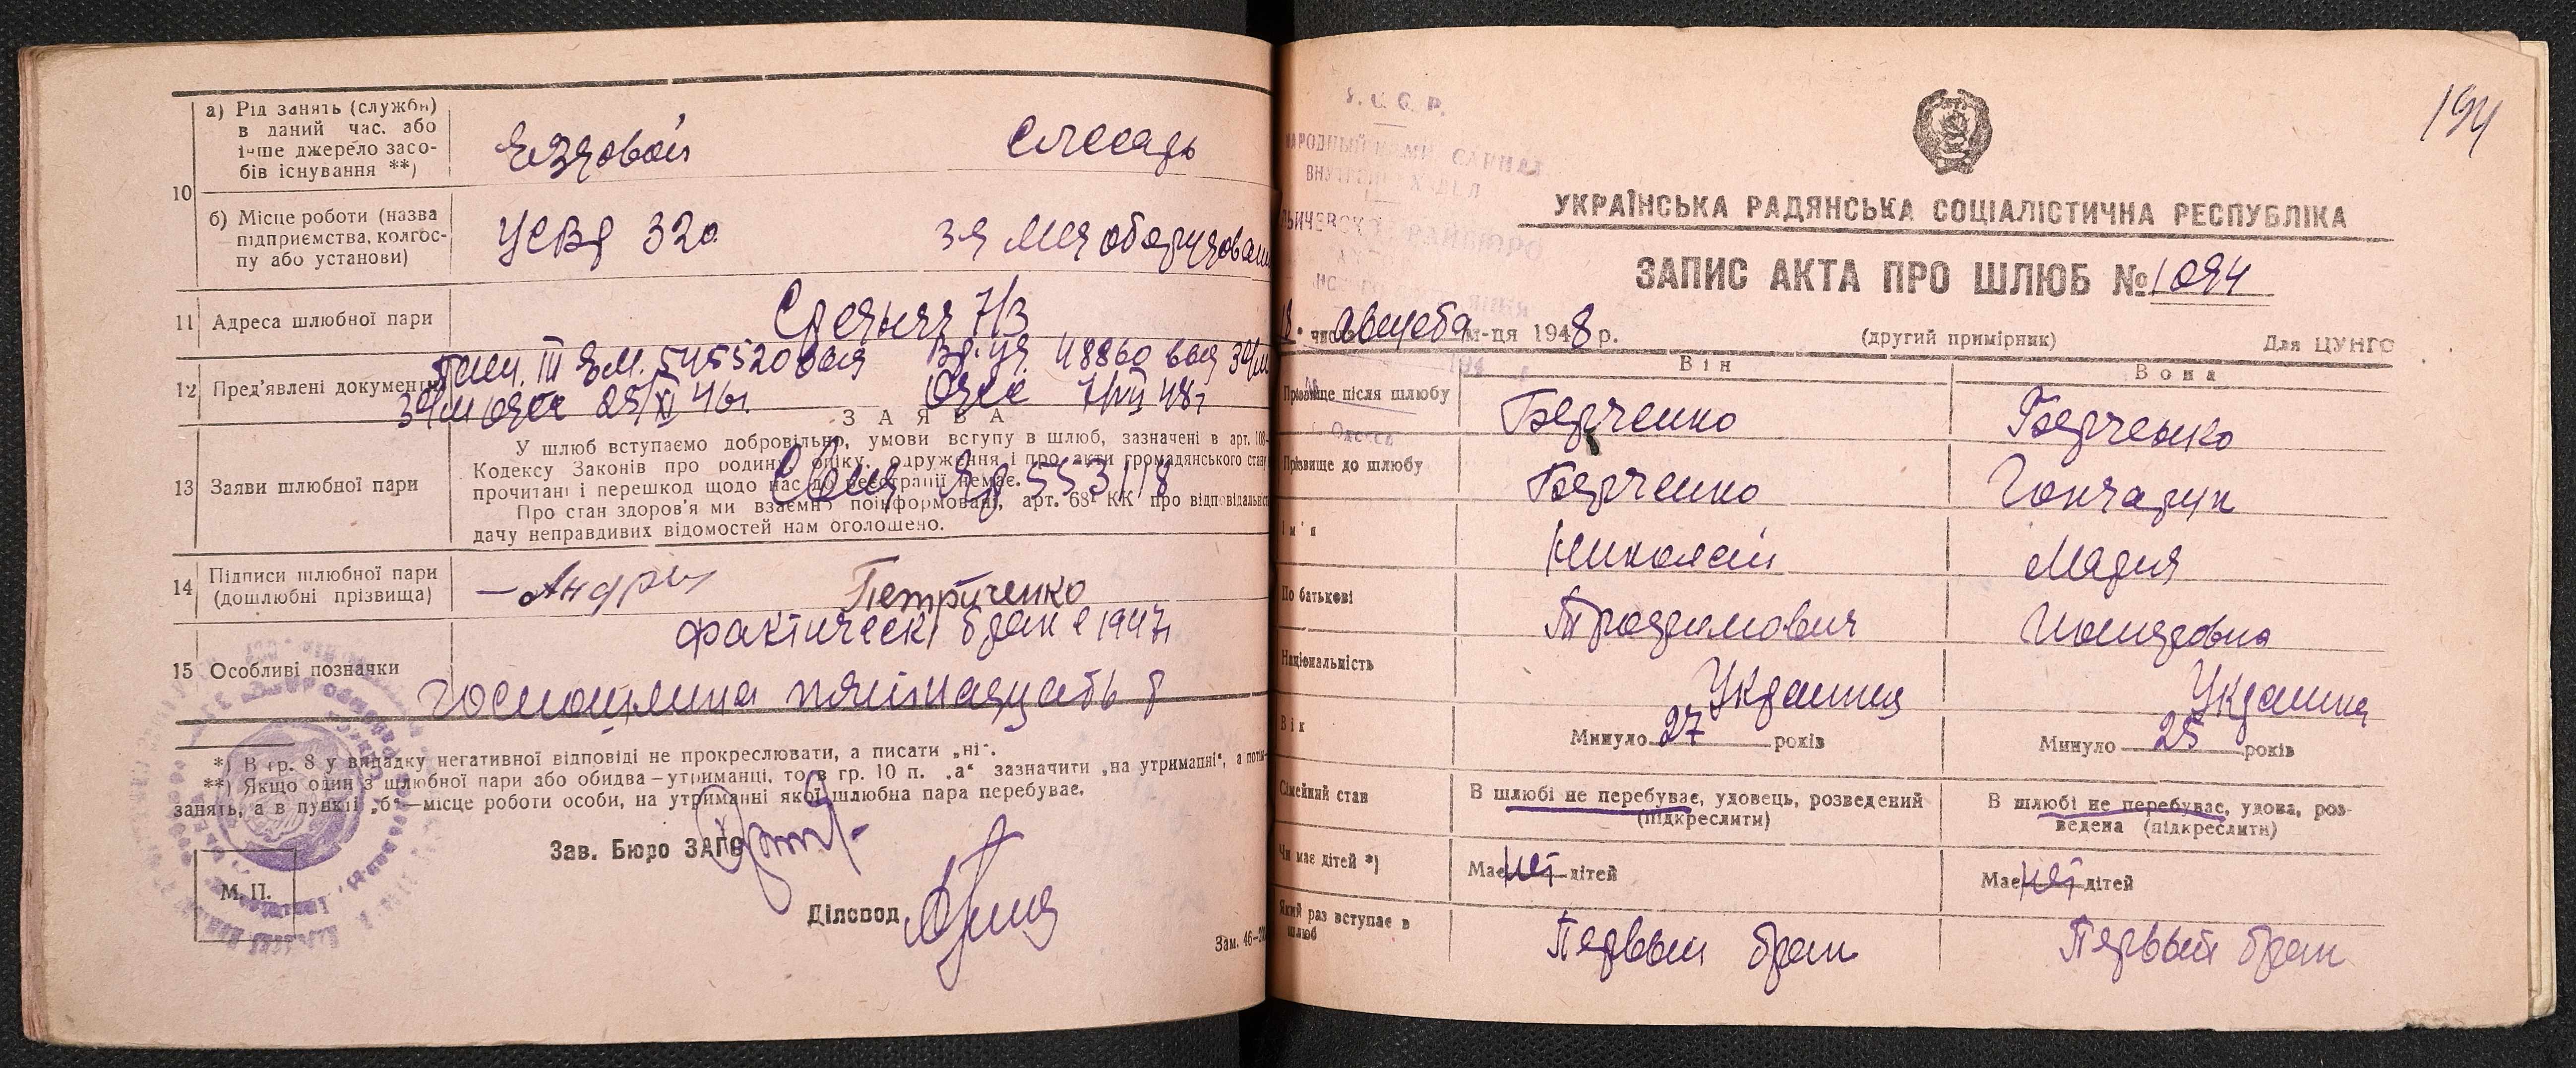 10
а) Рід занять (служби)
в даний час, або
інше джерело засо-
бів існування **)
Ездовой
Слесарь
б) Місце роботи (назва
підприємства, колгос-
пу або установи)
УСВР 320
з-д
11 Адреса шлюбної пари
Средняя 7/3
12 Пред'явлені документи
545520
48860
25/XI 46г.
ЗАЯВА
13 Заяви шлюбної пари
У шлюб вступаємо добровільно, умови вступу в шлюб, зазначені в арт. 108-
Кодексу Законів про родину, опіку, одруження і про акти громадянського стану
прочитані і перешкод щодо нас до реєстрації немає.
Про стан здоров'я ми взаємно поінформовані, арт. 68¹ КК про відповідальність
дачу неправдивих відомостей нам оголошено.
14 Підписи шлюбної пари
(дошлюбні прізвища)
Петриченко
15 Особливі позначки
фактическ брак с 1947г
Госпошлина пятнадцать р
*) В гр. 8 у випадку негативної відповіді не прокреслювати, а писати „ні“.
**) Якщо один з шлюбної пари або обидва—утриманці, то в гр. 10 п. „а“ зазначити „на утриманні“, а потім
занять, а в пункті „б“—місце роботи особи, на утриманні якої шлюбна пара перебуває.
Зав. Бюро ЗАГС
М. П.
Діловод
Зам. 46—
194
У. С. С. Р.
НАРОДНЫЙ КОМИССАРИАТ
ВНУТРЕННИХ ДЕЛ
РАЙБЮРО
г. Одесса
УКРАЇНСЬКА РАДЯНСЬКА СОЦІАЛІСТИЧНА РЕСПУБЛІКА
ЗАПИС АКТА ПРО ШЛЮБ № 1094
18 • числа Августа м-ця 1948 р.
(другий примірник)
Для ЦУНГО
Він
Вона
Прізвище після шлюбу
Берченко
Берченко
Прізвище до шлюбу
Берченко
Гончарук
Ім'я
Николай
Мария
По батькові
Трофимович
Національність
Украинец
Украинка
Вік
Минуло 27 років
Минуло 25 років
Сімейний стан
В шлюбі не перебуває, удовець, розведений
(підкреслити)
В шлюбі не перебуває, удова, роз-
ведена (підкреслити)
Чи має дітей *)
Має нет дітей
Має нет дітей
Який раз вступає в
шлюб
Первый брак
Первый брак